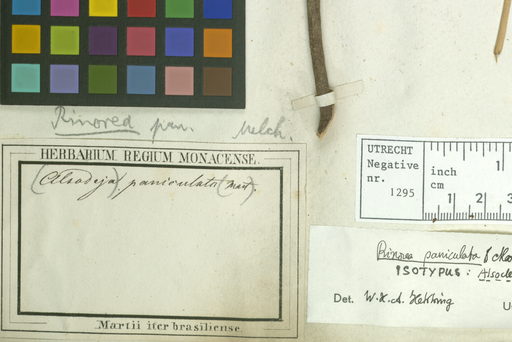 Rinorea pan. Melch.
HERBARIUM REGIUM MONACENSE.
(Alsodeja) paniculata (Mart).
Martii iter brasiliense.
UTRECHT
Negative
nr.
1295
inch
cm
1
1 2 3
Rinorea paniculata (Mar
ISOTYPUS: Alsode
Det. W.H.A. Hekking
U